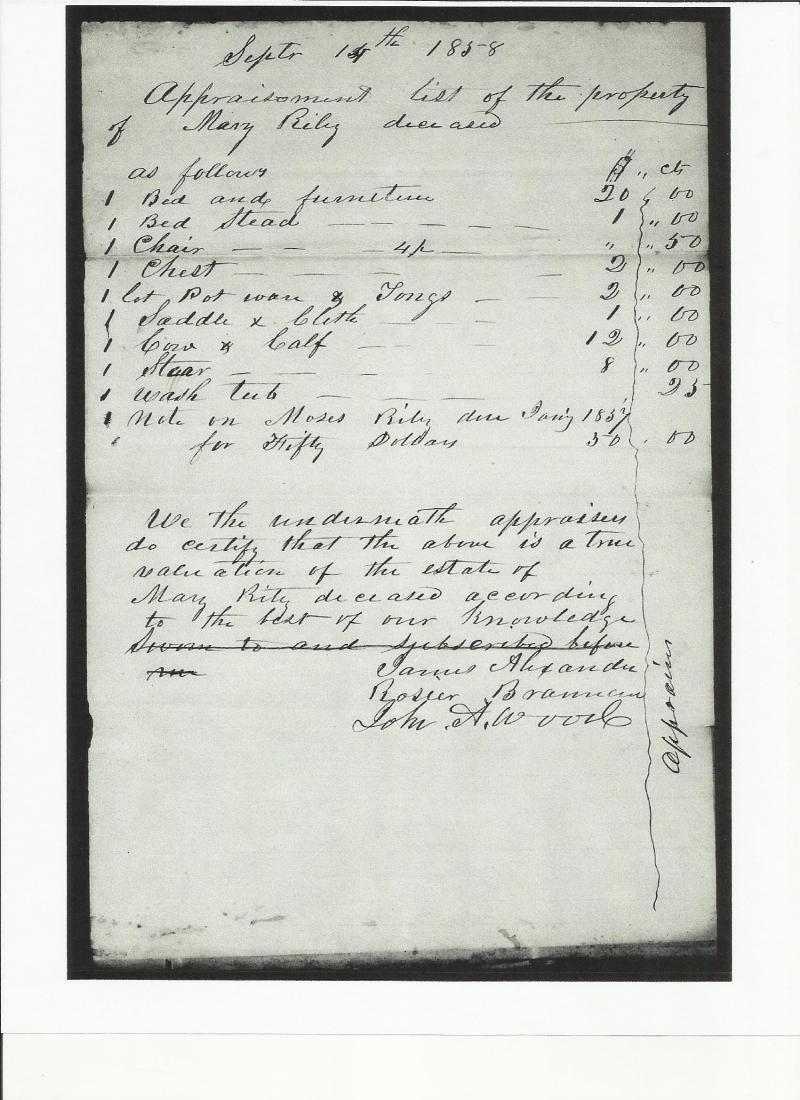 Septr 14th 1858
Appraisement list of the property
of Mary Rily deceased
as follows $ " cts
1 Bed and furneture 20 " 00
1 Bed Stead — — — — — 1 " 00
1 Chair — — — 4/2 — " " 50
1 Chest — — — — 2 " 00
1 lot Pot ware & Tongs — — 2 " 00
1 Saddle & Cloth — — — 1 " 00
1 Cow & Calf — — — 12 " 00
1 Stear — — — — 8 " 00
1 Wash tub — — — 25
1 Note on Moses Rily due Jany 1857
for Fifty Dollars 50 . 00
We the underneath appraisers
do certify that the above is a true
valuation of the estate of
Mary Rily deceased according
to the best of our knowledge
Sworn to and subscribed before
me
James Alexander
Rosier Brannan
John A. Wood
appraisers